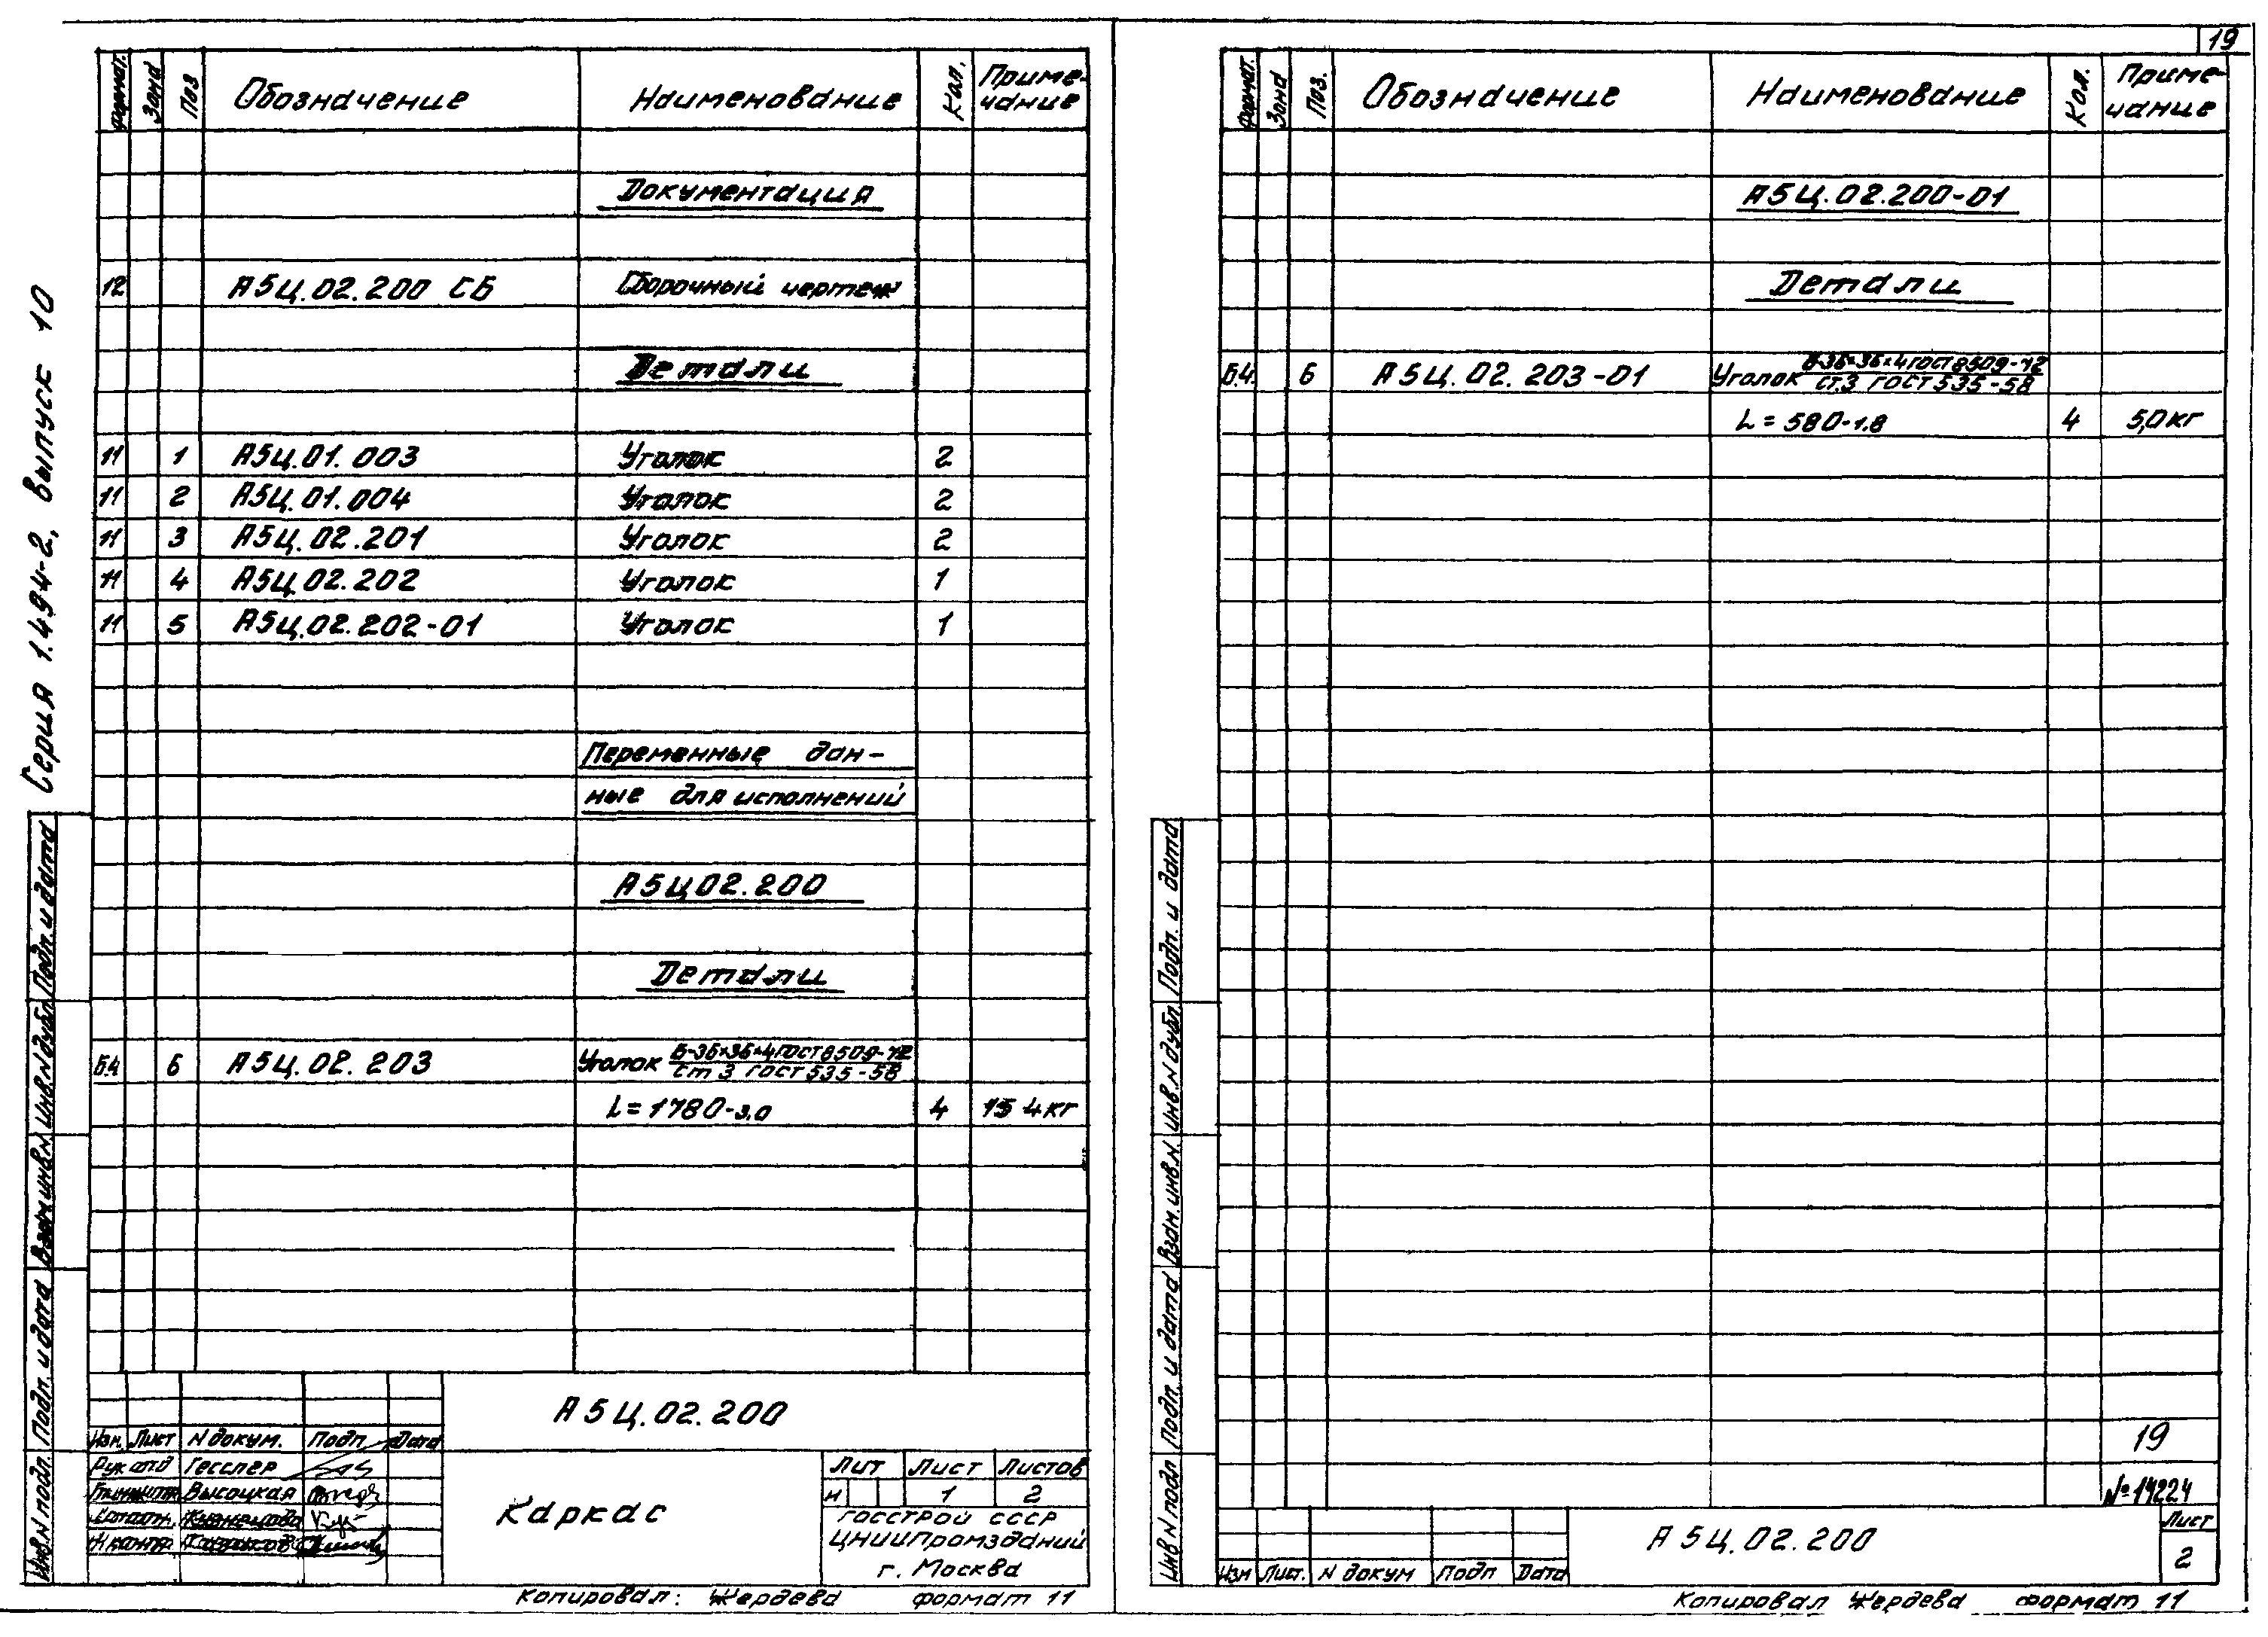 19
Серия 1.494-2, выпуск 10
Формат. Зона Поз Обозначение Наименование Кол. Приме-
чание
Документация
12 А5Ц.02.200 СБ Сборочный чертеж
Детали
11 1 А5Ц.01.003 Уголок 2
11 2 А5Ц.01.004 Уголок 2
11 3 А5Ц.02.201 Уголок 2
11 4 А5Ц.02.202 Уголок 1
11 5 А5Ц.02.202-01 Уголок 1
Переменные дан-
ные для исполнений
А5Ц02.200
Детали
Б.4 6 А5Ц.02.203 Уголок Б-36×36×4 ГОСТ 8509-72
Ст 3 ГОСТ 535-58
L=1780-3,0 4 15 4кг
Подп. и дата
Инв.N дубл.
Взам инв.N
Подп. и дата
Инв N подл.
А5Ц.02.200
Изм. Лист N докум. Подп Дата
Рук отд Гесслер
Высоцкая
Кузнецова
Н контр
Каркас
Лит Лист Листов
И 1 2
ГОССТРОЙ СССР
ЦНИИПромзданий
г. Москва
Копировал: Жердева формат 11
Формат. Зона Поз. Обозначение Наименование Кол. Приме-
чание
А5Ц.02.200-01
Детали
Б.4. 6 А5Ц.02.203-01 Уголок Б-36×36×4 ГОСТ 8509-72
Ст.3 ГОСТ 535-58
L=580-1.8 4 5,0кг
Подп. и дата
Инв.N дубл.
Взам.инв.N.
Подп. и дата
Инв N подл
19
№14224
А5Ц.02.200
Лист
2
Изм Лист. N докум Подп Дата
Копировал Жердева формат 11